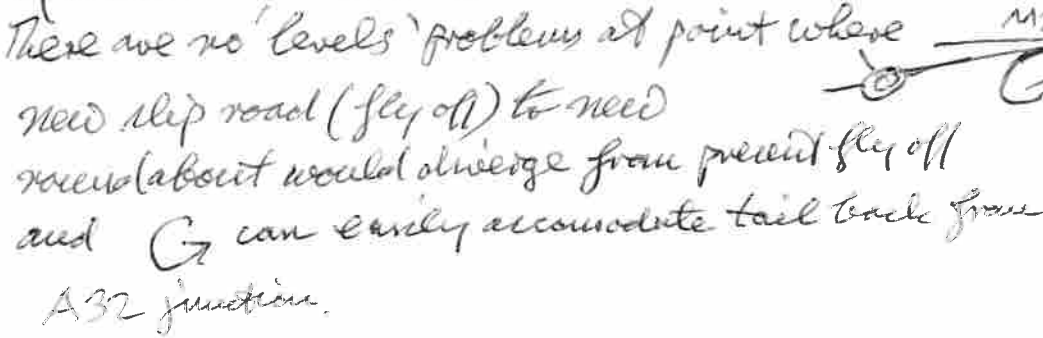 There are no 'levels' problems at point where
new slip road (fly off) to new
roundabout would diverge from present fly off
and G can easily accomodate tail back from
A32 junction.